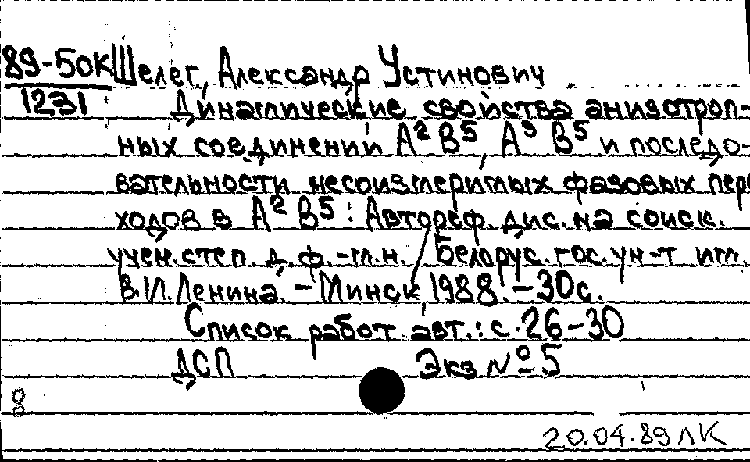 89-50к Шелег, Александр Устинович
1231 Динамические свойства анизотроп-
ных соединений А²В⁵, А³В⁵ и последо-
вательности несоизмеримых фазовых пере
ходов в А²В⁵: Автореф. дис. на соиск.
учен. степ. д. ф.-м.н. / Белорус. гос. ун-т им.
В.И. Ленина. - Минск, 1988. - 30с.
Список работ авт.: с. 26-30
ДСП Экз № 5
8
20.04.89 ЛК